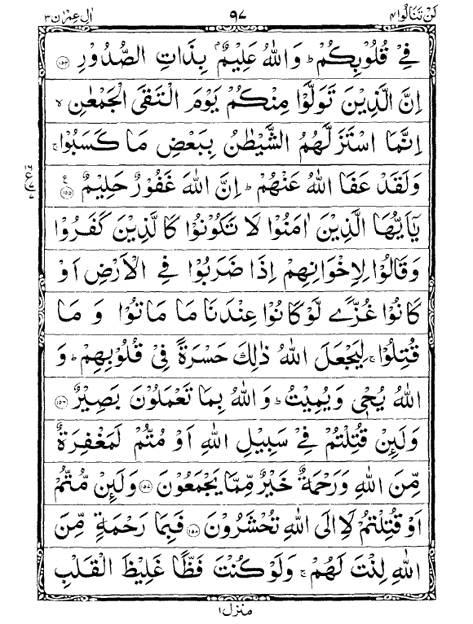 لَنْ تَنَالُوا ۴ ۹۷ اٰلِ عِمْرٰن ۳
فِيْ قُلُوْبِكُمْ ؕ وَاللّٰهُ عَلِيْمٌۢ بِذَاتِ الصُّدُوْرِ ۝۱۵۴
اِنَّ الَّذِيْنَ تَوَلَّوْا مِنْكُمْ يَوْمَ الْتَقَى الْجَمْعٰنِ ۙ
اِنَّمَا اسْتَزَلَّهُمُ الشَّيْطٰنُ بِبَعْضِ مَا كَسَبُوْا ۚ
وَلَقَدْ عَفَا اللّٰهُ عَنْهُمْ ؕ اِنَّ اللّٰهَ غَفُوْرٌ حَلِيْمٌ ۝۱۵۵ ع
يٰۤاَيُّهَا الَّذِيْنَ اٰمَنُوْا لَا تَكُوْنُوْا كَالَّذِيْنَ كَفَرُوْا
وَقَالُوْا لِاِخْوَانِهِمْ اِذَا ضَرَبُوْا فِي الْاَرْضِ اَوْ
كَانُوْا غُزًّى لَّوْ كَانُوْا عِنْدَنَا مَا مَاتُوْا وَ مَا
قُتِلُوْا ۚ لِيَجْعَلَ اللّٰهُ ذٰلِكَ حَسْرَةً فِيْ قُلُوْبِهِمْ ؕ وَ
اللّٰهُ يُحْيٖ وَيُمِيْتُ ؕ وَاللّٰهُ بِمَا تَعْمَلُوْنَ بَصِيْرٌ ۝۱۵۶
وَلَىِٕنْ قُتِلْتُمْ فِيْ سَبِيْلِ اللّٰهِ اَوْ مُتُّمْ لَمَغْفِرَةٌ
مِّنَ اللّٰهِ وَرَحْمَةٌ خَيْرٌ مِّمَّا يَجْمَعُوْنَ ۝۱۵۷ وَلَىِٕنْ مُّتُّمْ
اَوْ قُتِلْتُمْ لَاِالَى اللّٰهِ تُحْشَرُوْنَ ۝۱۵۸ فَبِمَا رَحْمَةٍ مِّنَ
اللّٰهِ لِنْتَ لَهُمْ ۚ وَلَوْ كُنْتَ فَظًّا غَلِيْظَ الْقَلْبِ
منزل ۱